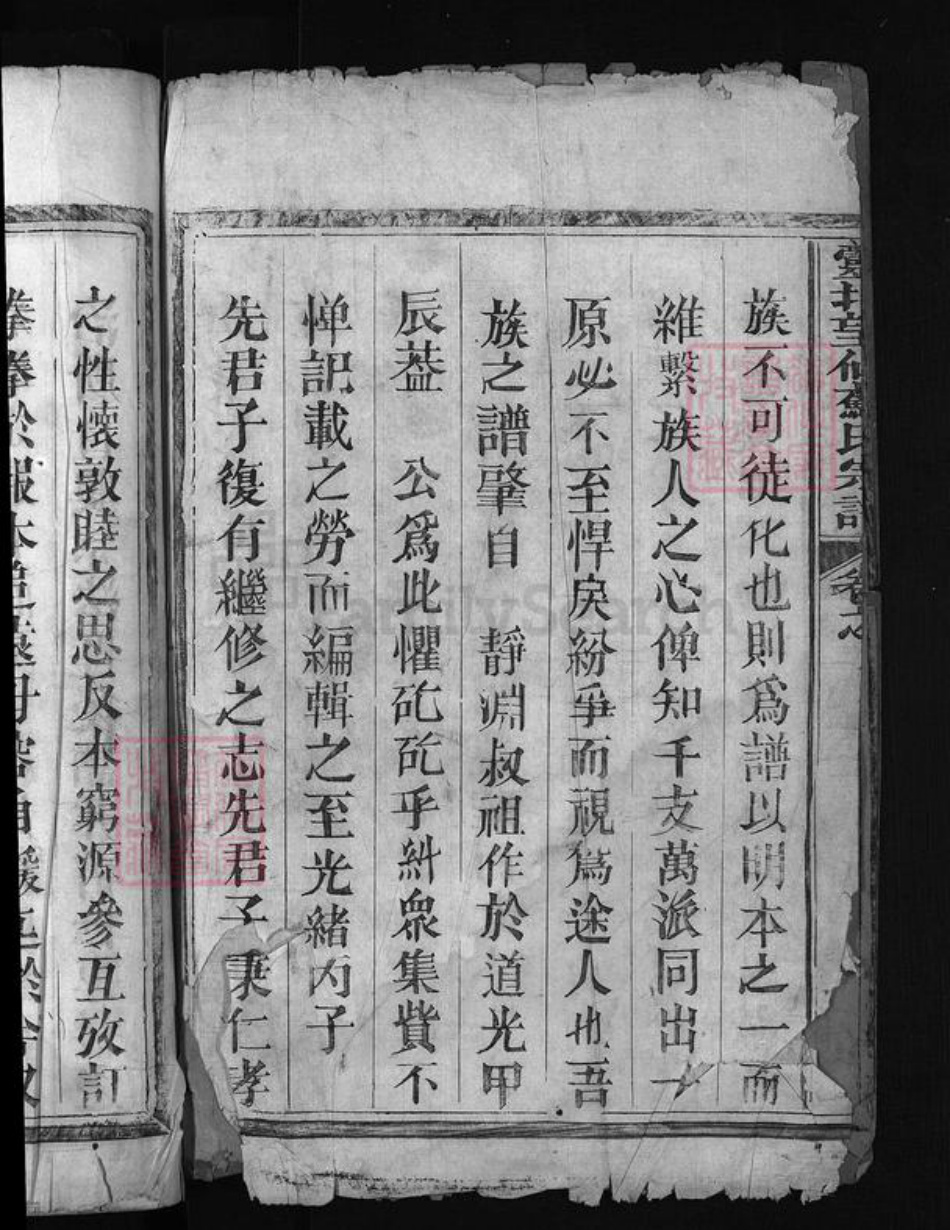 蘇氏宗譜
族不可徒化也則爲譜以明本之一而
維繫族人之心俾知千支萬派同出一
原必不至悍戾紛爭而視爲途人也吾
族之譜肇自 靜淵叔祖作於道光甲
辰葢 公爲此懼矻矻乎糾衆集貲不
憚記載之勞而編輯之至光緒丙子
先君子復有繼修之志先君子秉仁孝
之性懷敦睦之思反本窮源參互攷訂
拳拳於報本追遠
FamilySearch